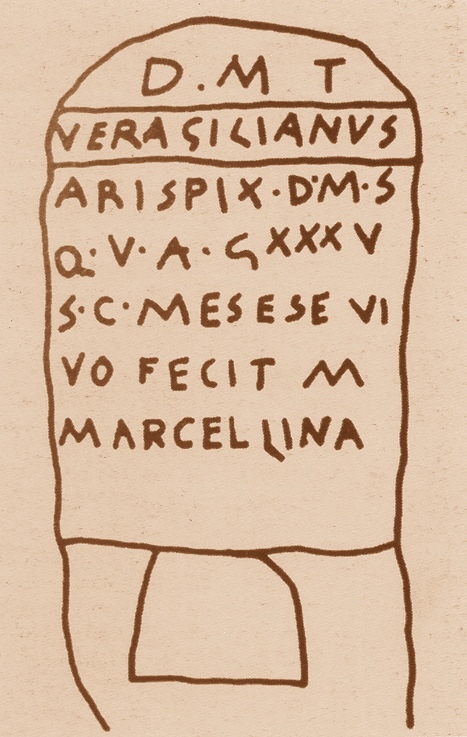 D.M T
VERASILIANVS
ARISPIX·D·M·S
Q·V·A·GXXXV
S·C·MESESE VI
VO FECIT M
MARCELLINA